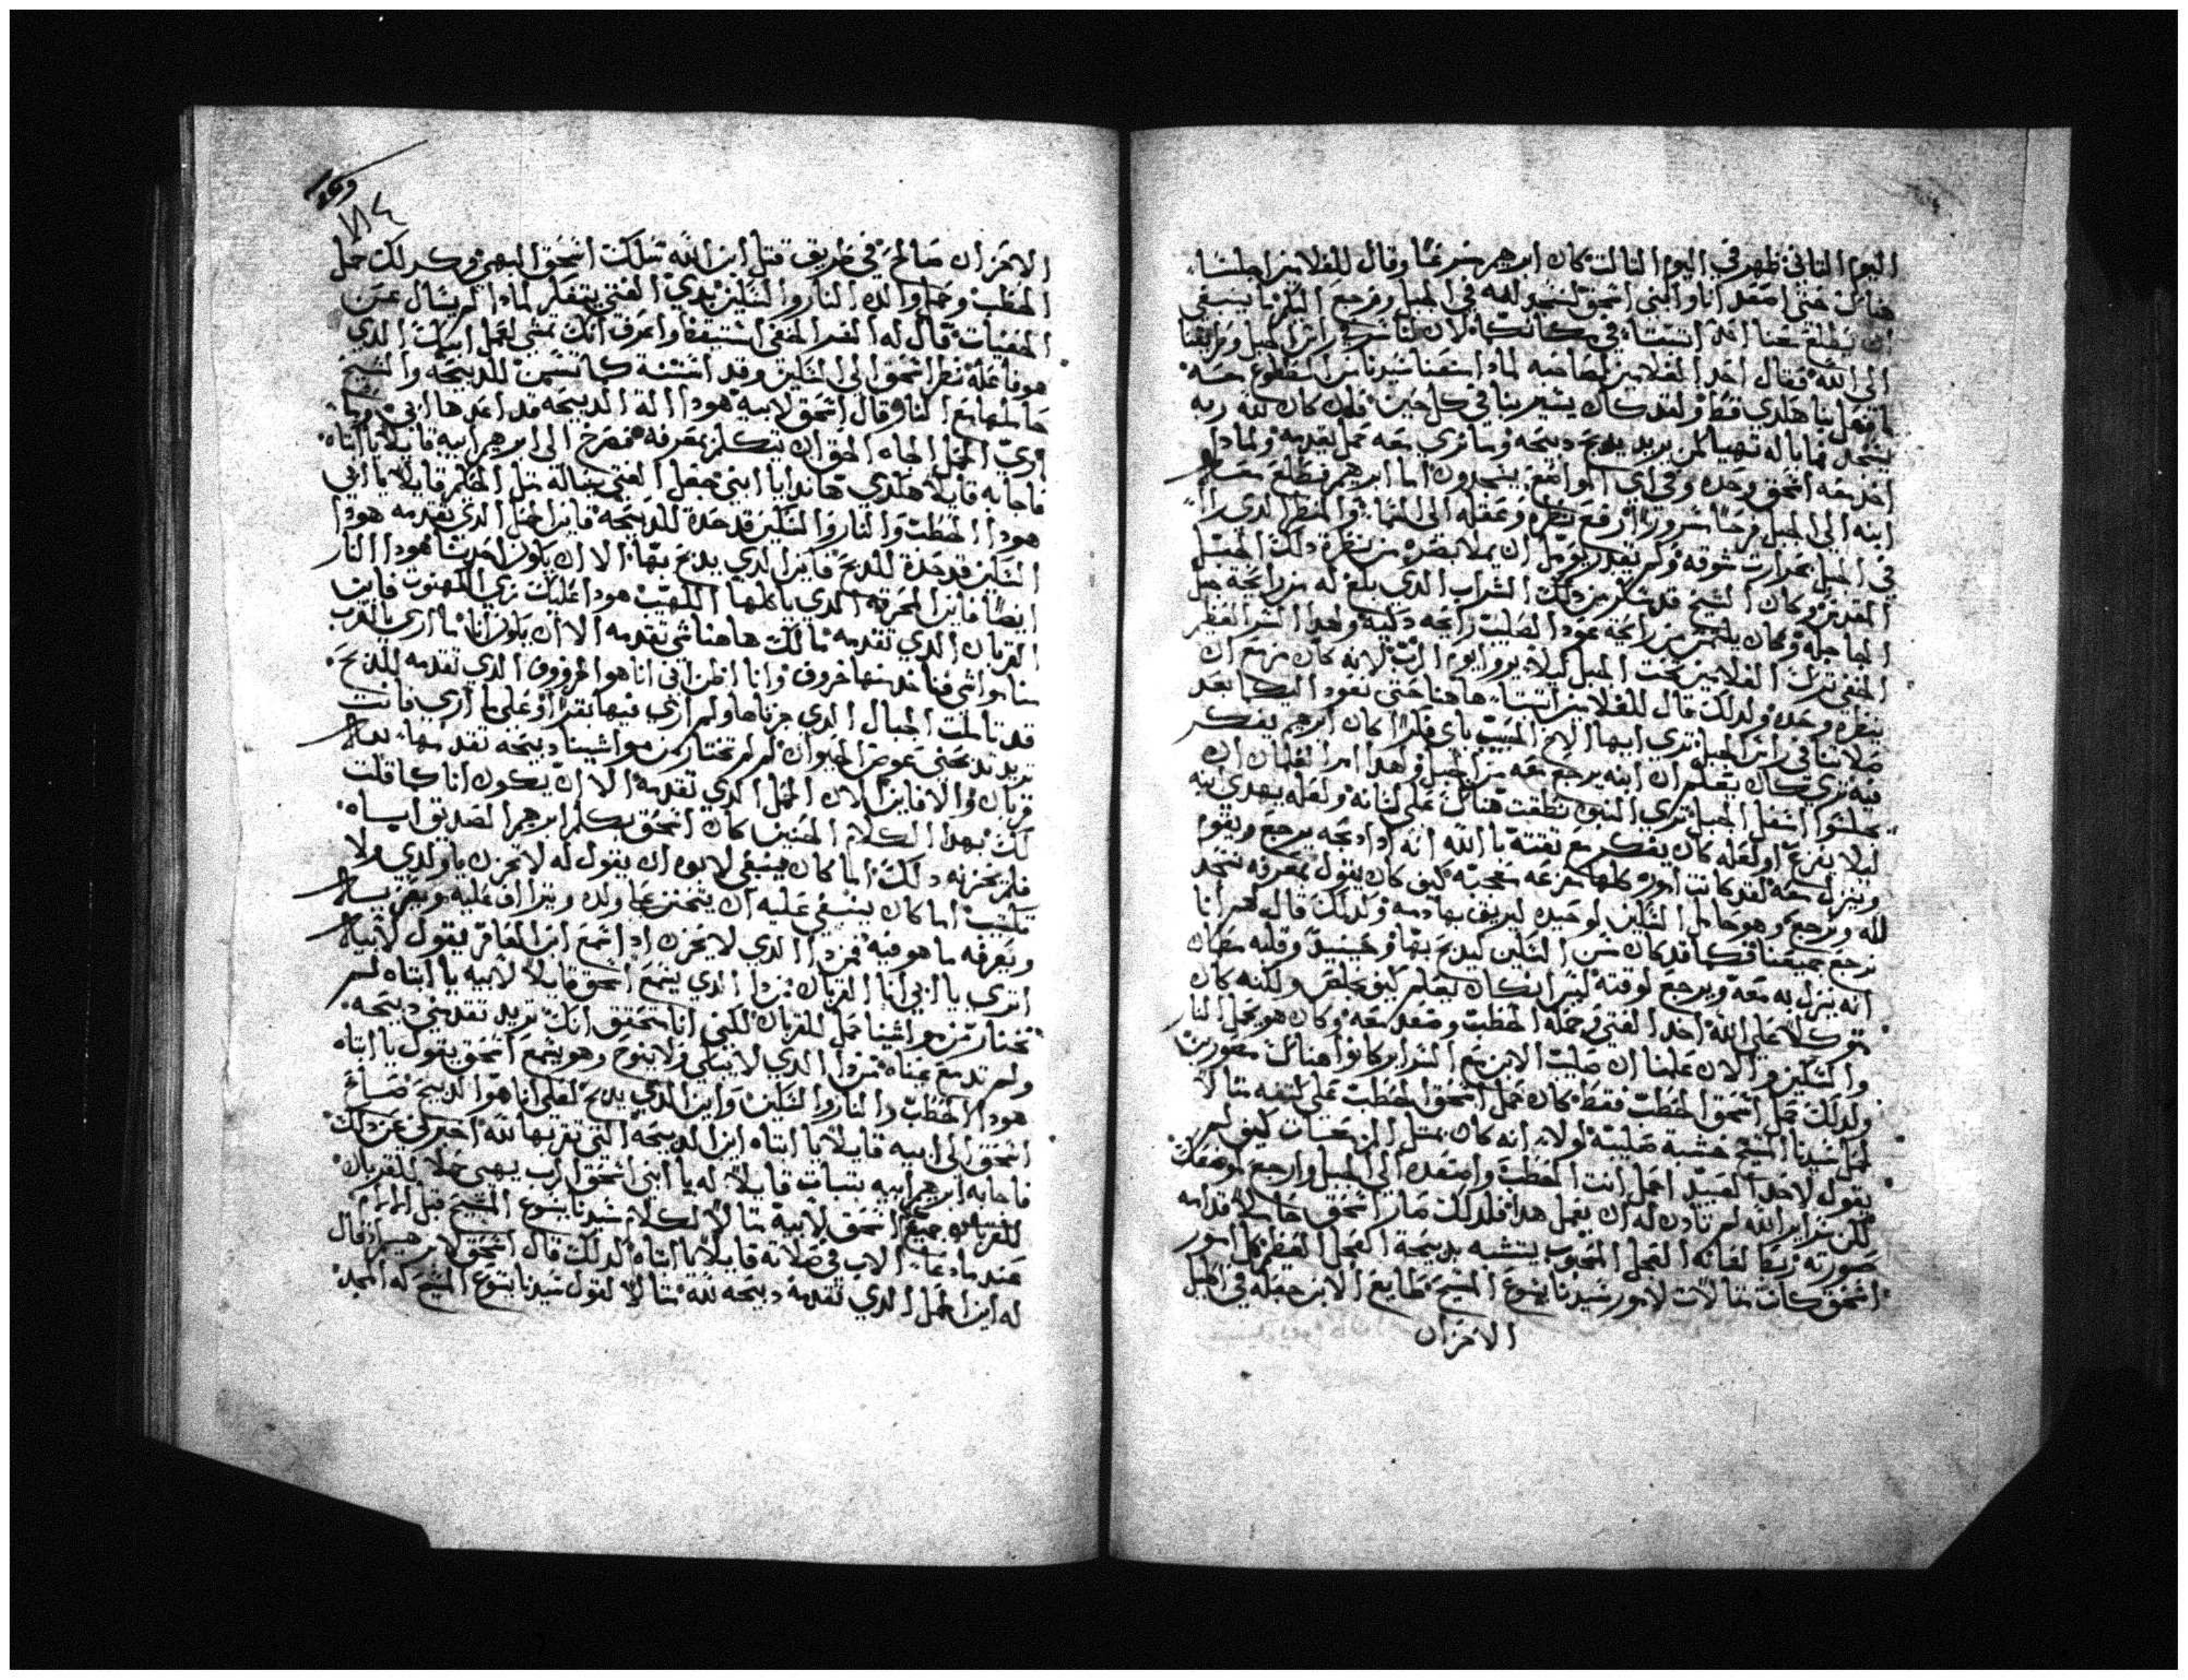 اليوم التاني ظهر في اليوم التالت كان ابرهيم متزعما وقال للغلامين اجلسا
هناك حتي اصعد انا وابني اسحق لنسجد لله في الجبل ونرجع اليكما ينبغي
ان يطلع معنا احد اتبتاه في مكانكما لان لنا سر في راس الجبل
الي الله فقال احد الغلامين لصاحبه لمادا سيدنا من الطلوع معه
ما فعل بنا هلدي قط ولقد كان يشير بنا في كل حين فان كان لله ربه
يسجد فما باله تهيا لمن يريد يدبح دبيحه وما نري معه حمل يقدمه ولمادا
اخد معه اسحق وحده وفي اي المواضع يسجدون اما ابرهيم فطلع مع
ابنه الي الجبل فرحا مسرورا ارفع نظره وعقله الي السما والمنظر الدي راا
في الجبل بحرارت شوقه ولم يقدر ان يملا بصره من نظرة دلك الجبل
المقدس وكان الشيخ قد سكر من دلك الشراب الدي بلغ له من رايحة جبل
الجاجله وكان يلتمس من رايحة عود الصليب رايحه دكيه ولهدا السر العظيم
الخفي ترك الغلامين تحت الجبل ليلا يروا يوم الرب لانه كان مزمع ان
ينظره وحده ولدلك قال للغلامين اتبتا هاهنا حتي نعود اليكما بعد
صلاتنا في راس الجبل تري ايها الاخ الحبيب باي فكرا كان ابرهيم يفكر
فيه تري كان يعلم ان ابنه يرجع معه من الجبل ولهدا امر الغلمان ان
يجلسوا اسفل الجبل تري النبوه نطقت هناك علي لسانه ولعله يهدي ابنه
ليلا يفزع او لعله كان يفكر مع تقته بالله انه ادا دبحه يرجع ويقوم
وينزل معه لقد كانت اموره كلها كيف كان يقول بمعرفه نسجد
لله ونرجع وهو حامل السكين لوحيده ليريق بها دمه ولدلك قال لهم انا
نرجع جميعنا فكما قد كان مسن السكين ليدبح بها وحينيد وقلبه
انه ينزل به معه ويرجع لوقته ليس انه كان يعلم كيف يخلص ولكنه كان
متوكلا علي الله اخد الفتي وحمله الحطب وصعد معه وكان هو يحمل النار
والسكين والان علمنا ان صليب الابن مع السراير كانوا هناك مصورين
ولدلك حمل اسحق الحطب فقط كان حمل اسحق الحطب علي كتفه متالا
لحمل سيدنا المسيح خشبة صليبه لولا انه كان يمتل كيف لم
يقول لاحد العبيد احمل انت الحطب واصعده الي الجبل وارجع لموضعك
لكن سراير الله لم تادن له ان يعمل هدا فلدلك صار اسحق حاملا قدامه
صورته ربطا لعانه العجل المحبوب يتشبه بدبيحة العجل العظيم كل امور
اسحق كانت متالات لامور سيدنا يسوع المسيح طايع الابن جعله في الجبل
الاحزان
١٨٤
الاحزان صالح في طريق قتل ابن الله سلكت اسحق البهي وكدلك حمل
الحطب وحمل والده النار والسكين بدي الفتي يتفكر لمادا لم يسال عن
الخفيات قال له السر الخفي استيقظ واعرف انك تمضي لعمل ابيك الدي
هو فاعله نظر اسحق الي السكين وقد اسننه كانسن للدبيحه والشيخ
حاملها مع النار وقال اسحق لابيه هودا الة الدبيحه قد اعدها ابي
اري الحمل الجاه الحق ان يتكلم بمعرفه فصرخ الي ابرهيم ابيه قايلا يا ابتاه
فاجابه قايلا هلدي هاندا يا ابني جعل الفتي يساله متل الحكيم قايلا يا ابي
هودا الحطب والنار والسكين قد حده للدبيحه فاين الحمل الدي تقدمه هودا
السكين قد حده للدبح فاين الدي يدبح بها الا ان يكون احدنا هودا النار
ايضا فاين المحرقه الدي ياكلها اللهيب هودا عليك زي الكهنوت فاين
القربان الدي تقدمه ما لك هاهنا شي تقدمه الا ان يكون انا ما اري بالقرب
منا مواشي فناخد منها خروف وانا اظن اني انا هو الخروف الدي تقدمه للدبح
قد تاملت الجبال الدي جزناها ولم اري فيها بقرا او علي ما اري فانت
تريد تدبحني عوض الحيوان لم لم تختار من مواشينا دبيحه تقدمها
قربان والا فاين الان الحمل الدي تقدمه الا ان يكون انا كما قلت
لك بهدا الكلام الحنين كان اسحق يكلم ابرهيم الصديق اباه
فلم يحزنه دلك اما كان ينبغي لابوه ان يقول له لا تحزن يا ولدي ولا
تكتيب اما كان ينبغي عليه ان يتحنن علي ولده ويتراف عليه ويعزيه
ويعرفه ما هو فيه فمن دا الدي لا يحزن ادا سمع ابن العاقر يقول لابيه
اتري يا ابي انا القربان من دا الدي يسمع اسحق قايلا لابيه يا ابتاه لم
تختار من مواشينا حمل للقربان لكني انا متحقق انك تريد تقدمني دبيحه
ولم تدمع عيناه من دا الدي لا يبكي ولا ينوح وهو يسمع اسحق يقول يا ابتاه
هودا الحطب والنار والسكين واين الدي يدبح لعلي انا هو الدبيح صاح
اسحق الي ابيه قايلا يا ابتاه اين الدبيحه التي تقربها لله اخبرني عن دلك
فاجابه ابرهيم ابيه بتبات قايلا له يا ابني اسحق الرب يهيي حملا للقربان
جميع اسحق لابيه متالا لكلام سيدنا يسوع المسيح قبل الالام
عندما دعا الاب في صلاته قايلا يا ابتاه لدلك قال اسحق لابرهيم اد قال
له اين الحمل الدي تقدمه دبيحه لله متالا لقول سيدنا يسوع المسيح له المجد